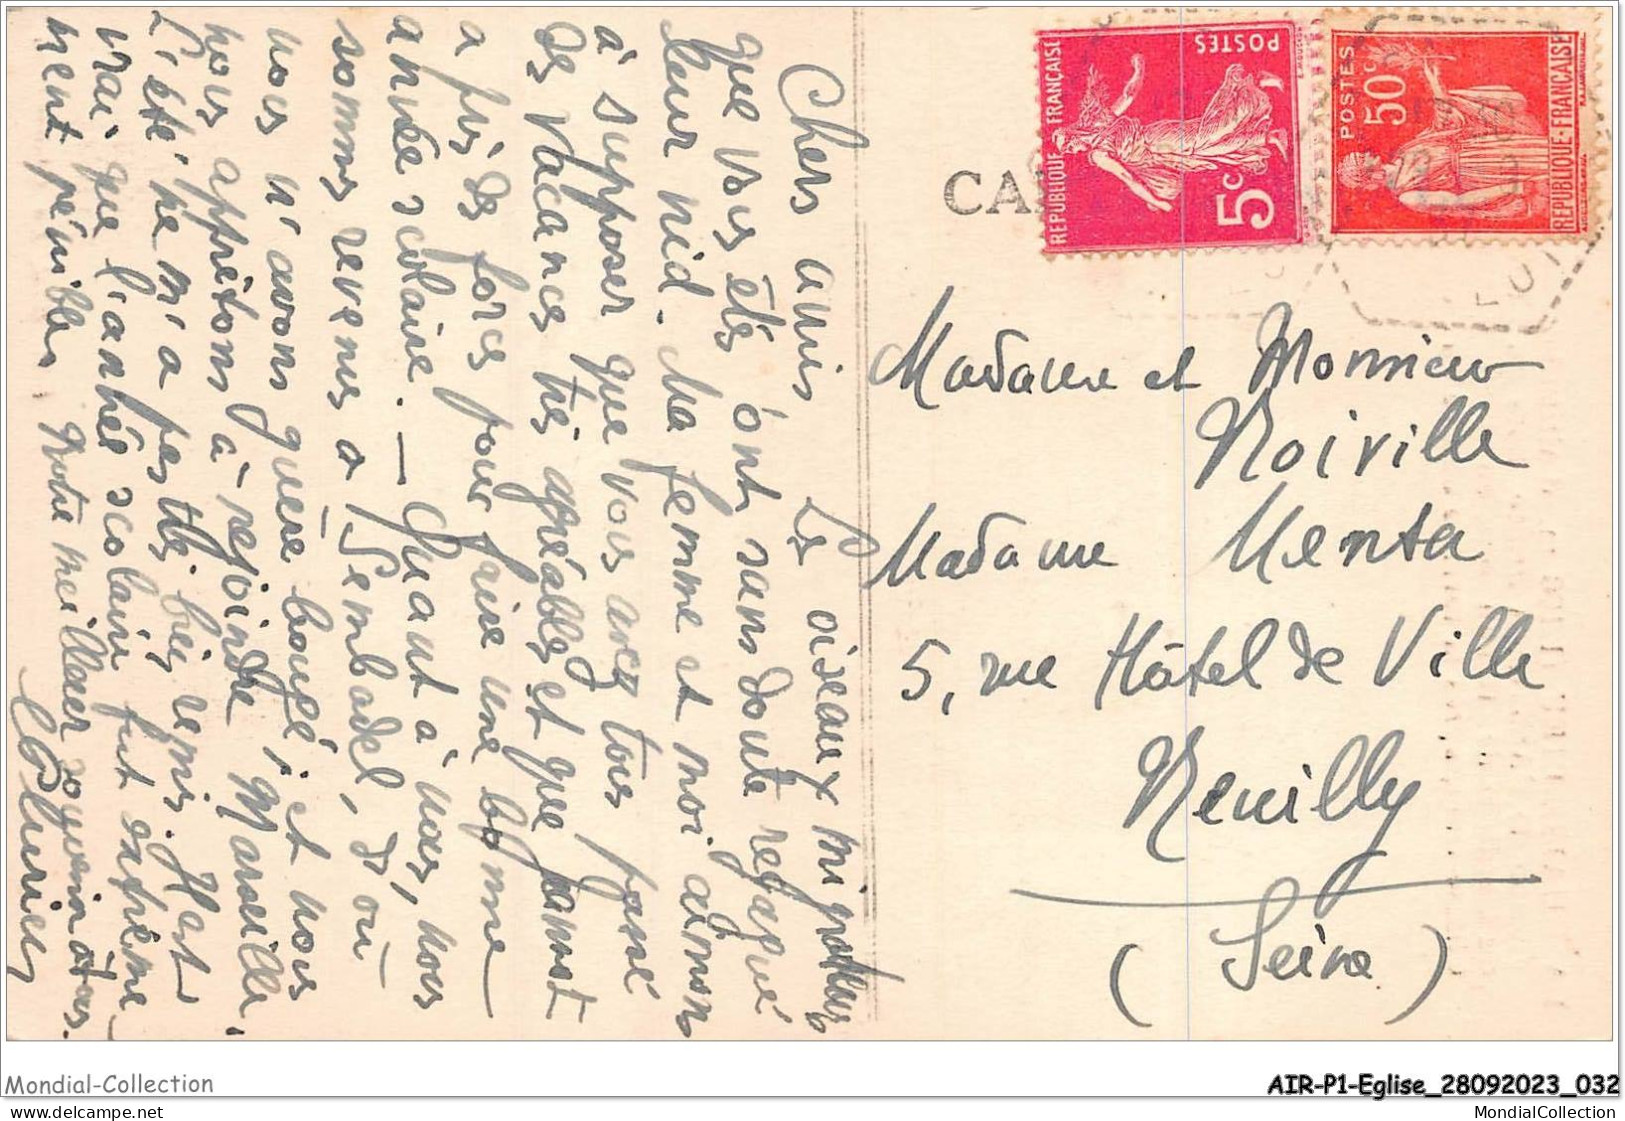 Chers amis Les oiseaux migrateurs
que vous êtes ont sans doute regagné
leur nid. Ma femme et moi aimons
à supposer que vous avez tous passé
des vacances très agréables et que
a pris des forces pour faire une bonne
année scolaire. — Quant à nous, nous
sommes revenus à Sembadel, d'où
nous n'avons guère bougé, et nous
nous apprêtons à rejoindre Marseille.
L'été ne m'a pas très bien remis. Il est
vrai que l'année scolaire fut extrême-
ment pénible. Notre meilleur souvenir à tous.
REPUBLIQUE FRANÇAISE
POSTES
5c
POSTES
50c
REPUBLIQUE-FRANÇAISE
CAR
Madame et Monsieur
Noirville
Madame Menta
5, rue Hôtel de Ville
Neuilly
(Seine)
Mondial-Collection
delcampe.net
AIR-P1-Eglise_28092023_032
MondialCollection